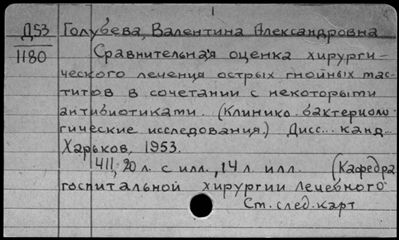 1
Д53 Голубева, Валентина Александровна
1180 Сравнительная оценка хирурги-
ческого лечения острых гнойных мас-
титов в сочетании с некоторыми
антибиотиками. (Клинико-бактериоло-
гические исследования.) Дисс... канд...
Харьков, 1953.
1411, 20 л. с илл., 14 л. илл. (Кафедра
госпитальной хирургии лечебного
Ст. след. карт